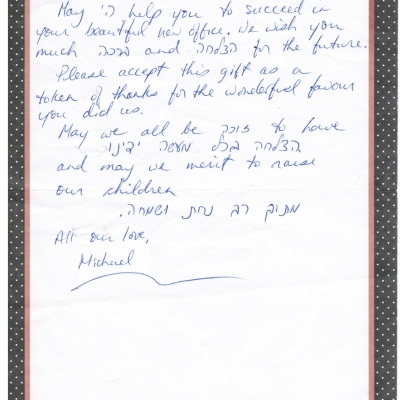 May ה' help you to succeed in
your beautiful new office. We wish you
much ברכה and הצלחה for the future.
Please accept this gift as a
token of thanks for the wonderful favour
you did us.
May we all be זוכה to have
הצלחה בכל מעשה ידינו
and may we merit to raise
our children
מתוך רב נחת ושמחה.
All our love,
Michael